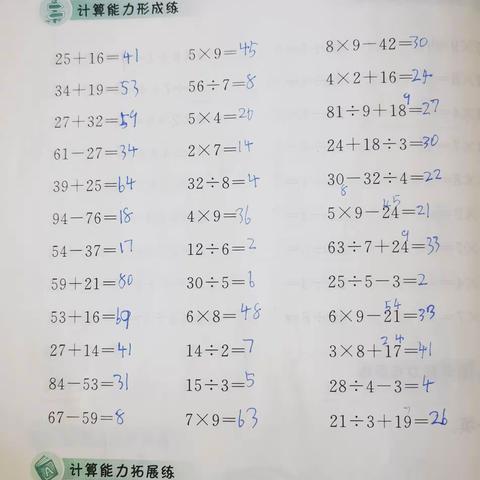 计算能力形成练
25+16=41 5×9=45 8×9-42=30
34+19=53 56÷7=8 4×2+16=24
27+32=59 5×4=20 81÷9+18=27 9
61-27=34 2×7=14 24+18÷3=30
39+25=64 32÷8=4 30-32÷4=22 8
94-76=18 4×9=36 5×9-24=21 45
54-37=17 12÷6=2 63÷7+24=33 9
59+21=80 30÷5=6 25÷5-3=2
53+16=69 6×8=48 6×9-21=33 54
27+14=41 14÷2=7 3×8+17=41 24
84-53=31 15÷3=5 28÷4-3=4
67-59=8 7×9=63 21÷3+19=26 7
计算能力拓展练